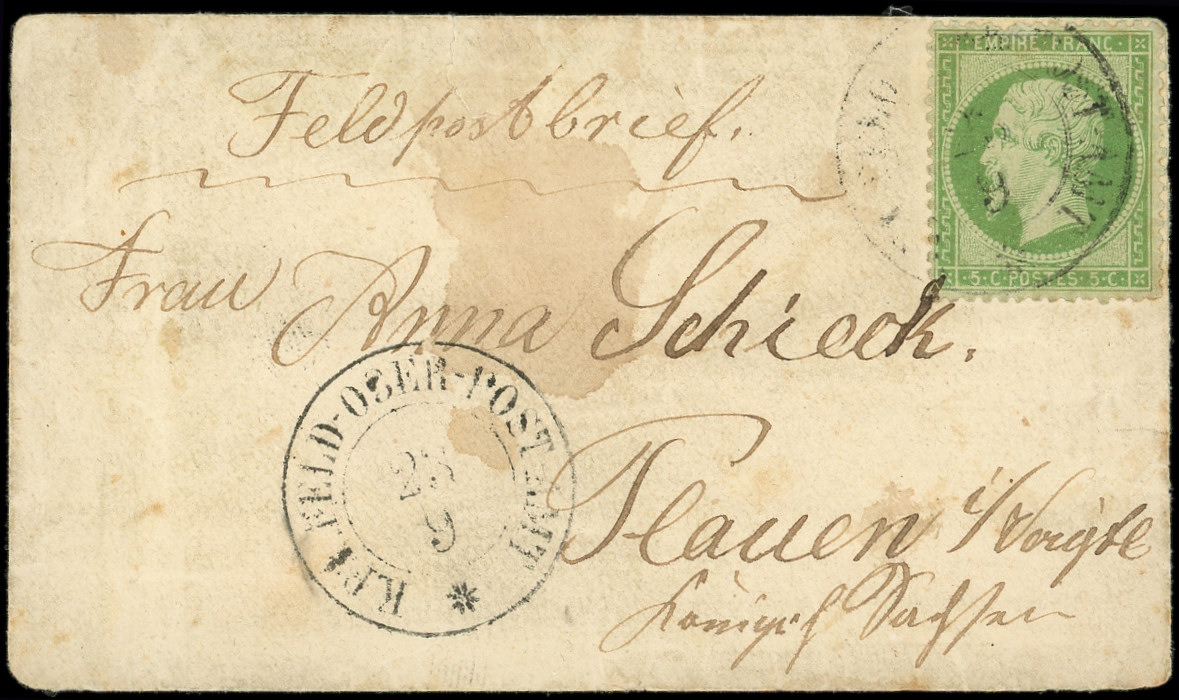 Feldpostbrief.
EMPIRE FRANC.
5 · C · POSTES · 5 · C ·
Frau Anna Schieck.
K. PR. FELD-OBER-POST-AMT
23
9
Plauen i/Voigtl
Königr Sachsen